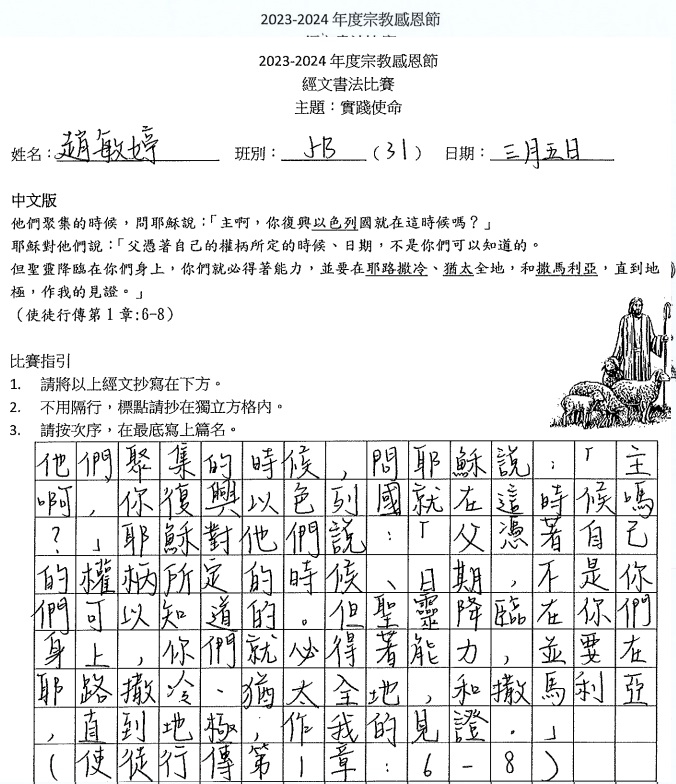 2023-2024 年度宗教感恩節
2023-2024 年度宗教感恩節
經文書法比賽
主題：實踐使命
姓名：趙敏婷 班別：5B（31） 日期：三月五日
中文版
他們聚集的時候，問耶穌說：「主啊，你復興以色列國就在這時候嗎？」
耶穌對他們說：「父憑著自己的權柄所定的時候、日期，不是你們可以知道的。
但聖靈降臨在你們身上，你們就必得著能力，並要在耶路撒冷、猶太全地，和撒馬利亞，直到地
極，作我的見證。」
（使徒行傳第 1 章:6-8）
比賽指引
1. 請將以上經文抄寫在下方。
2. 不用隔行，標點請抄在獨立方格內。
3. 請按次序，在最底寫上篇名。
他們聚集的時候，問耶穌說：「主
啊，你復興以色列國就在這時候嗎
？」耶穌對他們說：「父憑著自己
的權柄所定的時候、日期，不是你
們可以知道的。但聖靈降臨在你們
身上，你們就必得著能力，並要在
耶路撒冷、猶太全地，和撒馬利亞
，直到地極，作我的見證。」
（使徒行傳第1章：6-8）